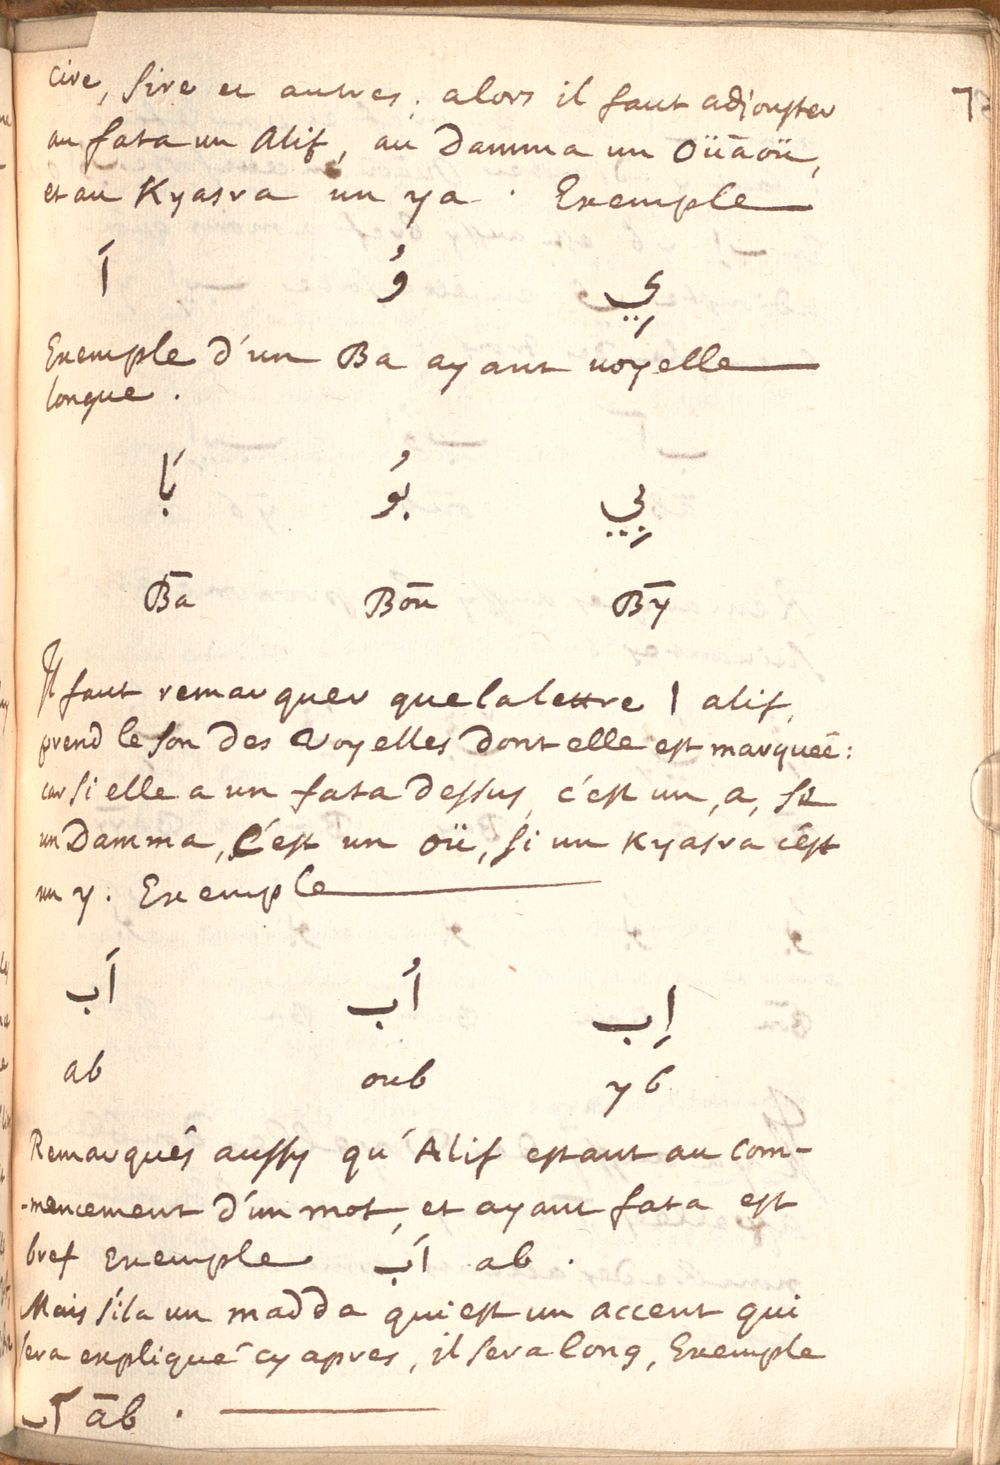 7
cire, sire et autres. alors il faut adjouster
au fata un Alif, au Damma un Oüāoü,
et au Kyasra un ya. Exemple
اَ وُ يِ
Exemple d'un Ba ayant voyelle
longue.
بَا بوُ بيِ
B̄a Boū B̄y
Il faut remarquer que la lettre ا alif,
prend le son des Voyelles dont elle est marqueé:
car si elle a un fata dessus, c'est un, a, si
un Damma, c'est un oü, si un Kyasra c'est
un y. Exemple
اَب اُب اِب
ab oub yb
Remarqués aussy qu'Alif estant au com-
-mencement d'un mot, et ayant fata est
bref Exemple اَب ab.
Mais s'il a un madda qui est un accent qui
sera expliqué cy apres, il sera long, Exemple
آب āb.